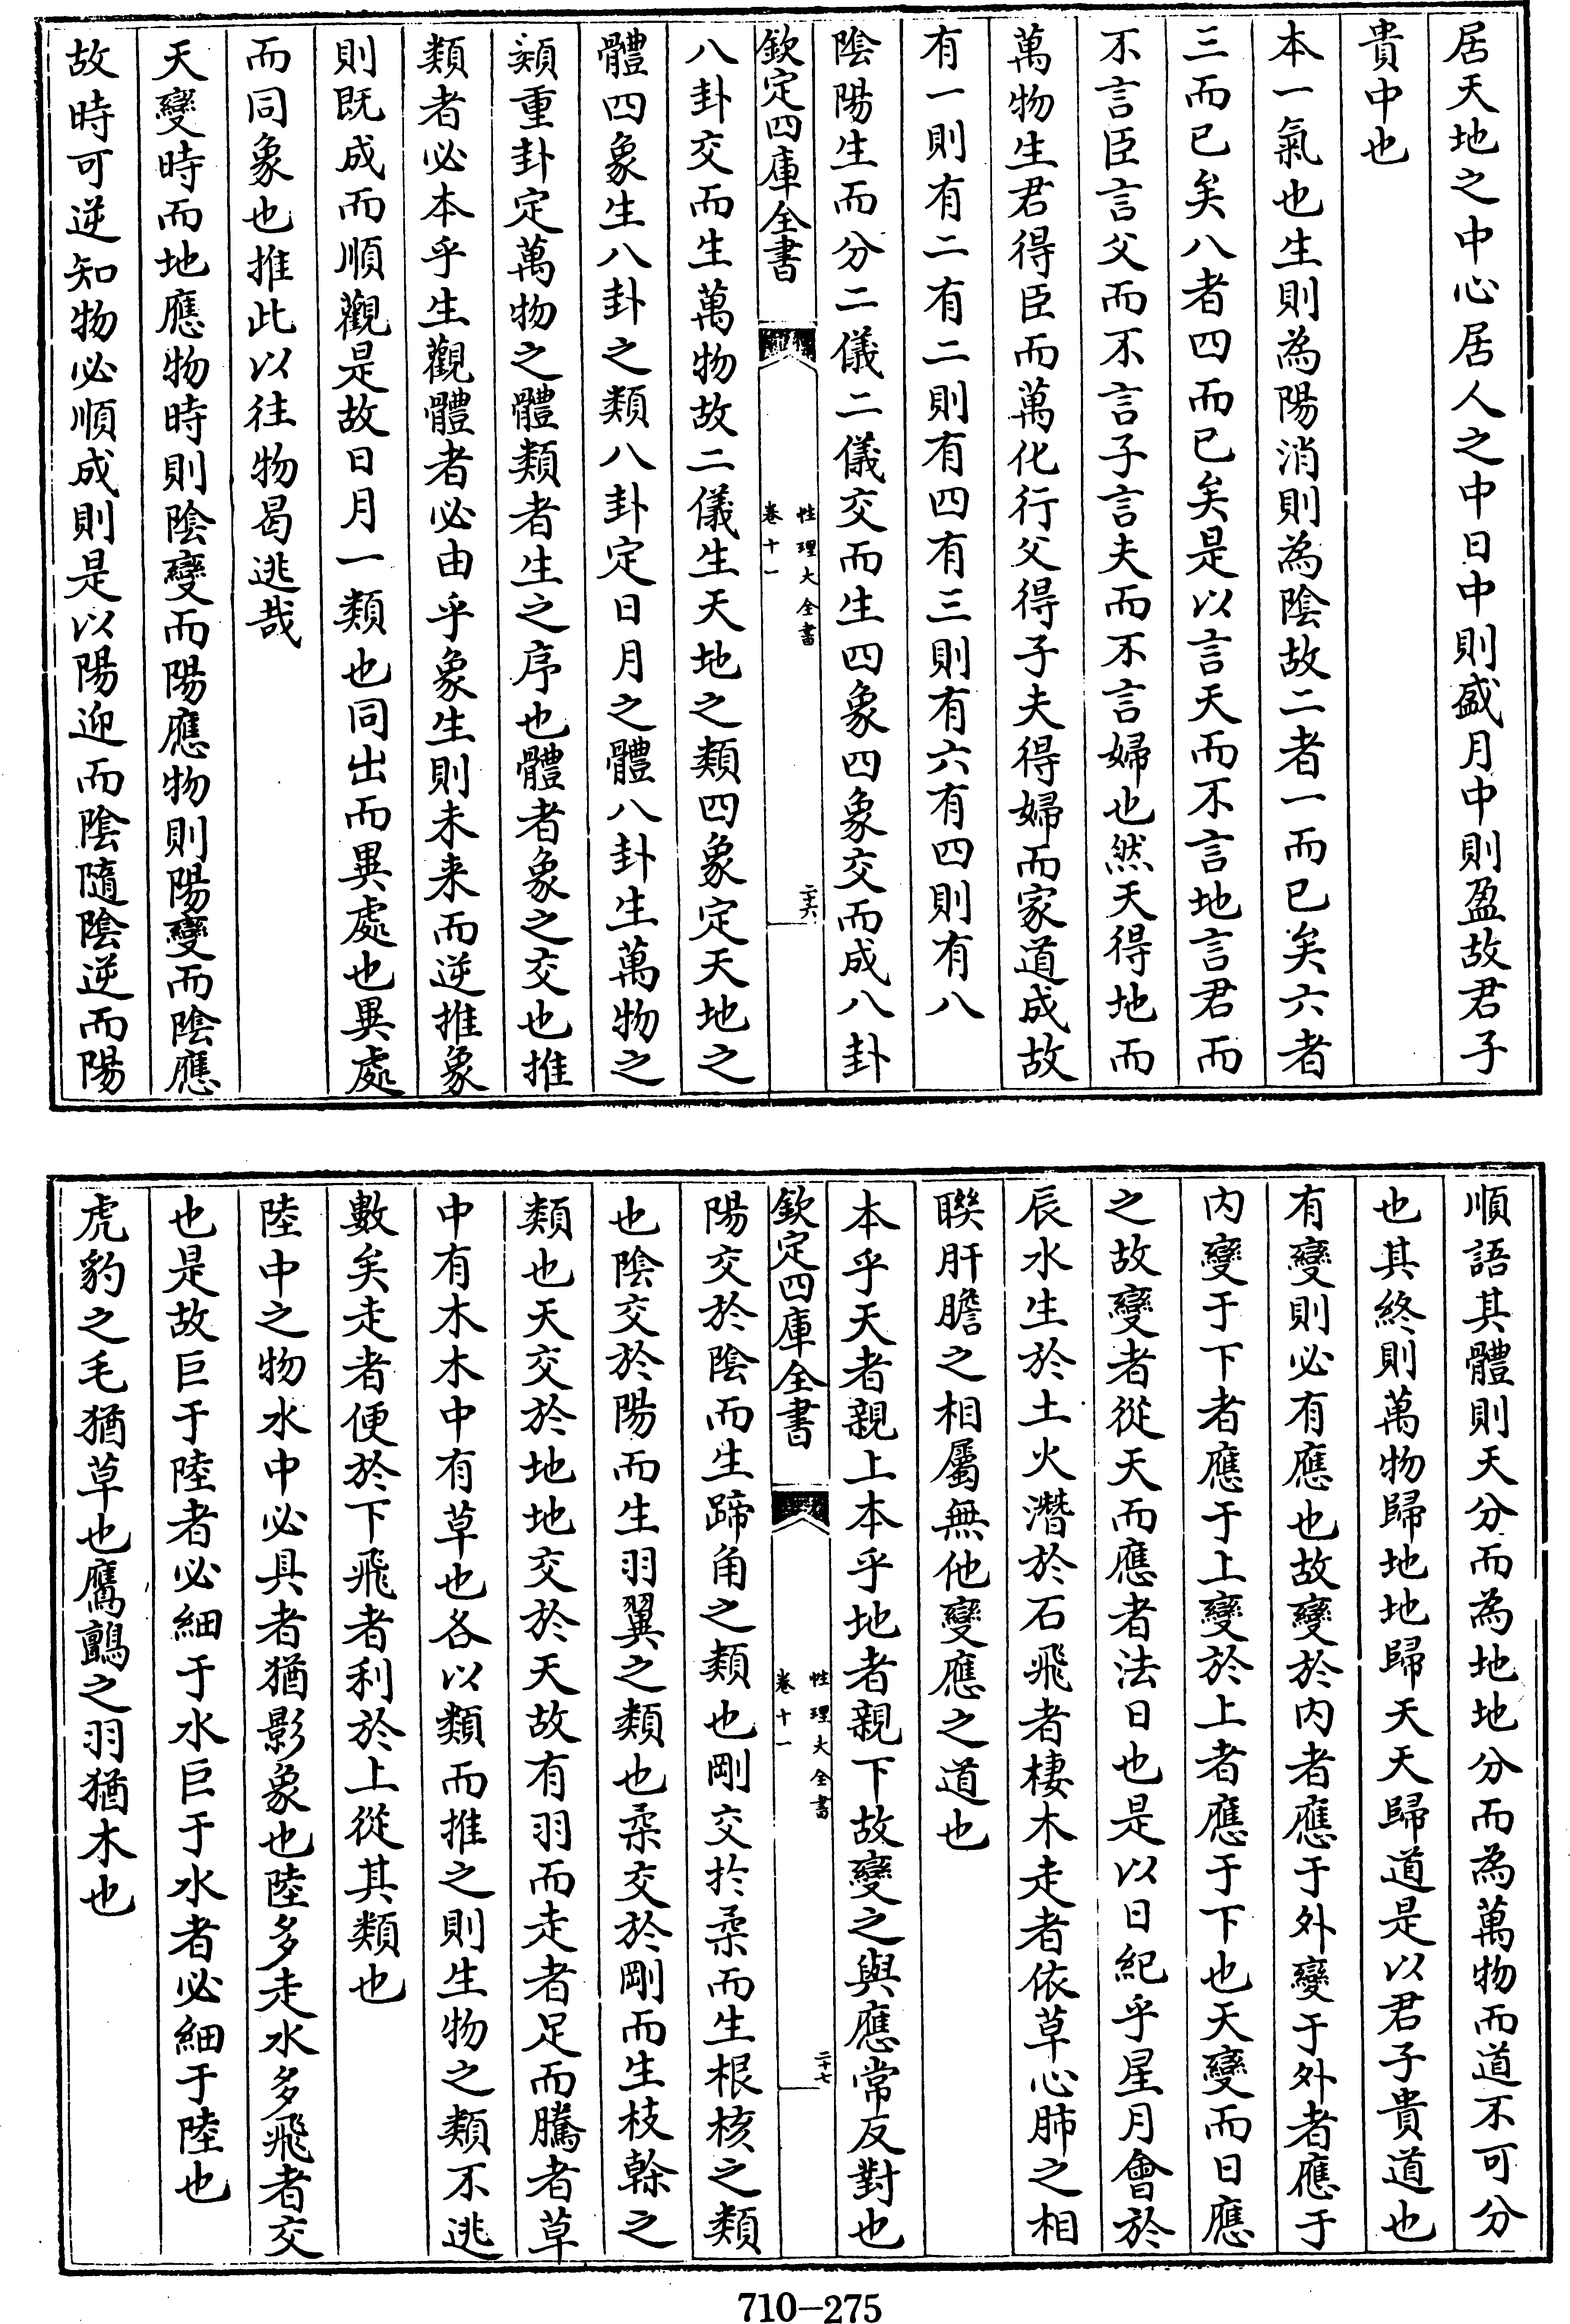 居天地之中心居人之中日中則盛月中則盈故君子
貴中也
本一氣也生則為陽消則為陰故二者一而已矣六者
三而已矣八者四而已矣是以言天而不言地言君而
不言臣言父而不言子言夫而不言婦也然天得地而
萬物生君得臣而萬化行父得子夫得婦而家道成故
有一則有二有二則有四有三則有六有四則有八
陰陽生而分二儀二儀交而生四象四象交而成八卦
欽定四庫全書
性理大全書
卷十一
二十六
八卦交而生萬物故二儀生天地之類四象定天地之
體四象生八卦之類八卦定日月之體八卦生萬物之
類重卦定萬物之體類者生之序也體者象之交也推
類者必本乎生觀體者必由乎象生則未来而逆推象
則既成而順觀是故日月一類也同出而異處也異處
而同象也推此以往物曷逃哉
天變時而地應物時則陰變而陽應物則陽變而陰應
故時可逆知物必順成則是以陽迎而陰隨陰逆而陽
順語其體則天分而為地地分而為萬物而道不可分
也其終則萬物歸地地歸天天歸道是以君子貴道也
有變則必有應也故變於内者應于外變于外者應于
内變于下者應于上變於上者應于下也天變而日應
之故變者從天而應者法日也是以日紀乎星月會於
辰水生於土火潛於石飛者棲木走者依草心肺之相
聯肝膽之相屬無他變應之道也
本乎天者親上本乎地者親下故變之與應常反對也
欽定四庫全書
性理大全書
卷十一
二十七
陽交於陰而生蹄角之類也剛交於柔而生根核之類
也陰交於陽而生羽翼之類也柔交於剛而生枝榦之
類也天交於地地交於天故有羽而走者足而騰者草
中有木木中有草也各以類而推之則生物之類不逃
數矣走者便於下飛者利於上從其類也
陸中之物水中必具者猶影象也陸多走水多飛者交
也是故巨于陸者必細于水巨于水者必細于陸也
虎豹之毛猶草也鷹鸇之羽猶木也
710-275